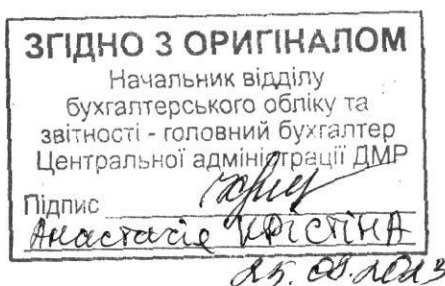 ЗГІДНО З ОРИГІНАЛОМ
Начальник відділу
бухгалтерського обліку та
звітності - головний бухгалтер
Центральної адміністрації ДМР
Підпис
Анастасія КРІСТІНА
25.08.2023